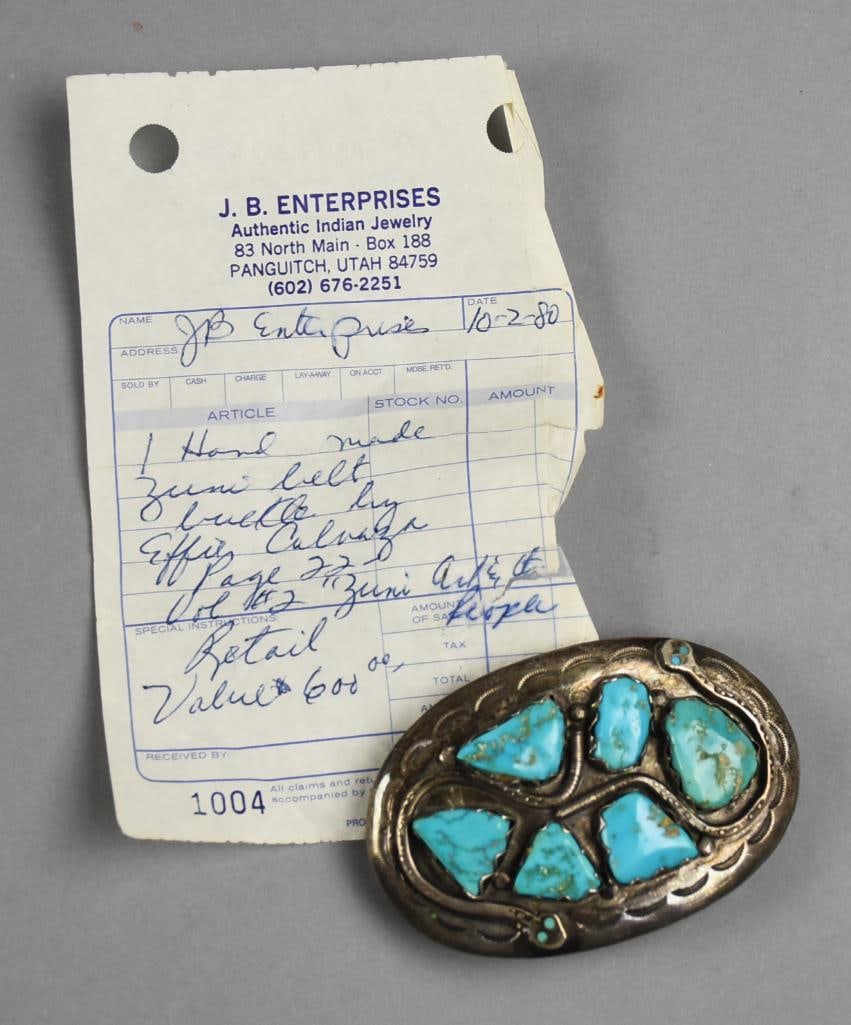 J. B. ENTERPRISES
Authentic Indian Jewelry
83 North Main · Box 188
PANGUITCH, UTAH 84759
(602) 676-2251
NAME JB Enterprises DATE 10-2-80
ADDRESS
SOLD BY CASH CHARGE LAY-A-WAY ON ACCT. MDSE. RET'D.
ARTICLE STOCK NO. AMOUNT
1 Hand made
Zuni belt
buckle by
Effie Calvaza
Page 22
Vol #2 "Zuni Art & the
People
SPECIAL INSTRUCTIONS: AMOUNT
OF SA
Retail TAX
Value 600 00 TOTAL
AM
RECEIVED BY:
1004 All claims and retu
accompanied by
PRO